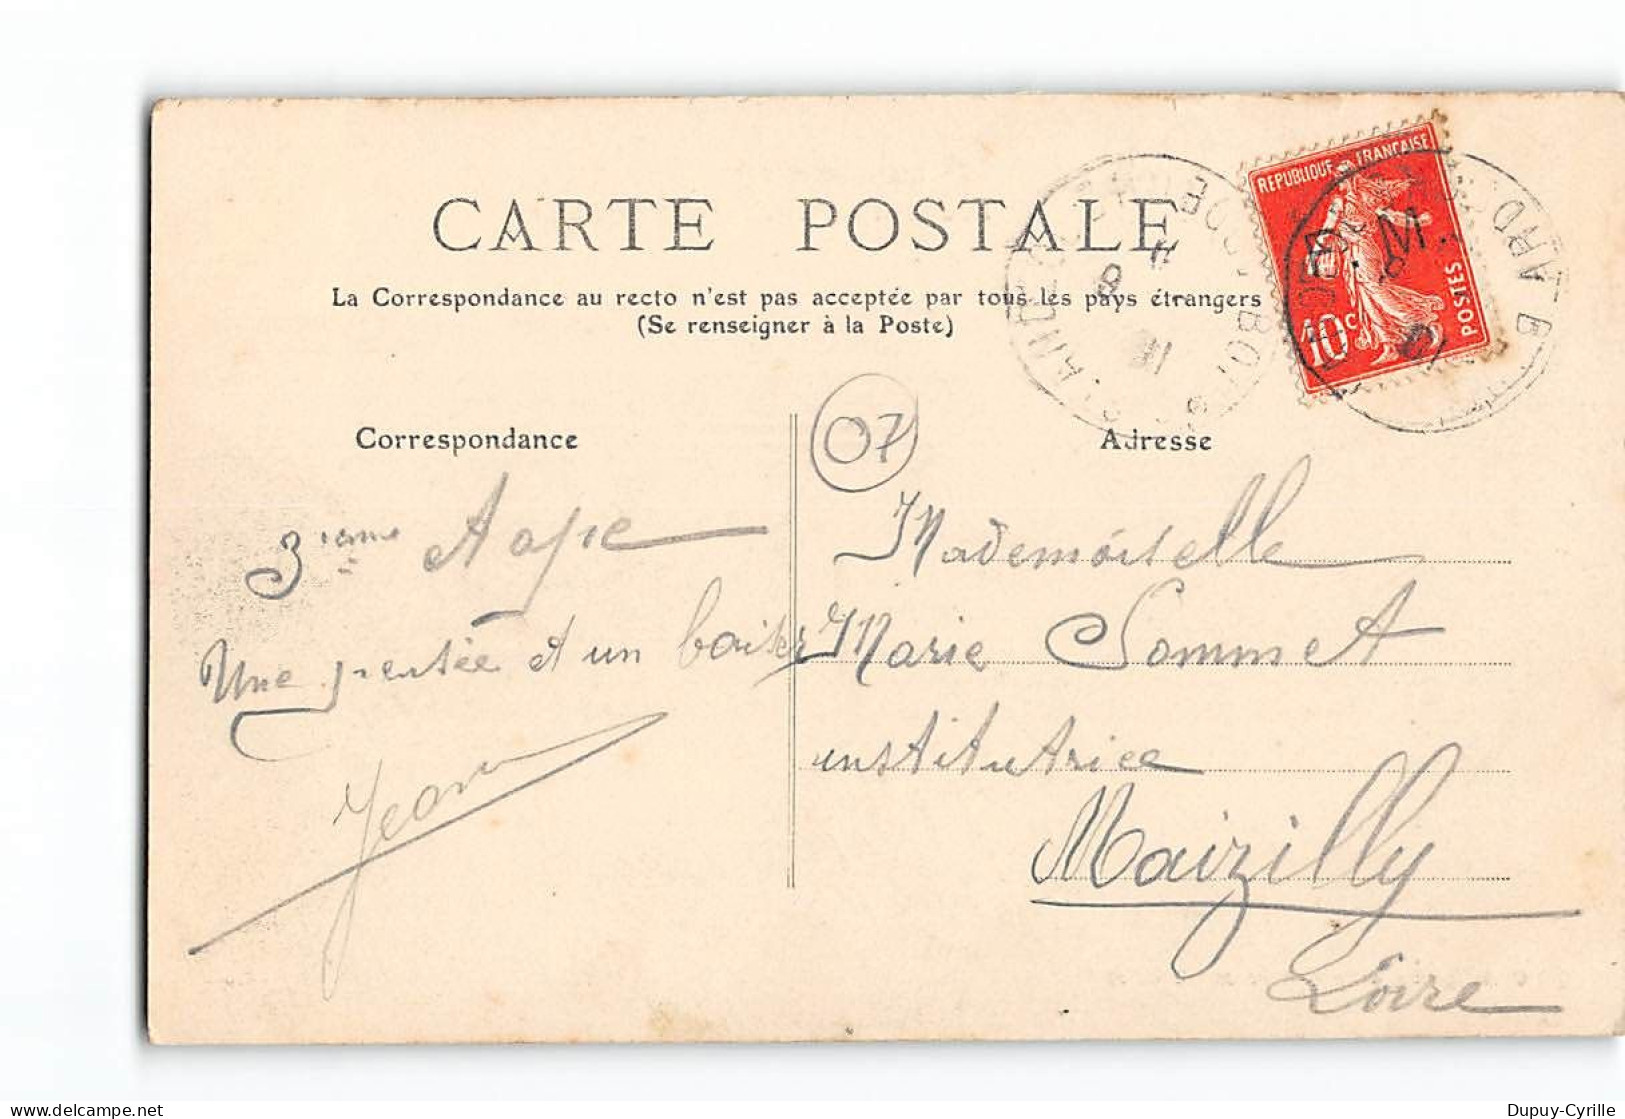 CARTE POSTALE
La Correspondance au recto n'est pas acceptée par tous les pays étrangers
(Se renseigner à la Poste)
REPUBLIQUE FRANÇAISE
10c
POSTES
07
Correspondance
3ième
Une pensée et un baiser
Adresse
Mademoiselle
Marie Sommet
institutrice
Maizilly
Loire
Dupuy-Cyrille